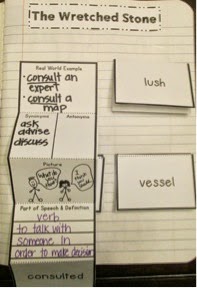 The Wretched Stone
Real World Example
• consult an
expert
• consult a
map
Synonyms Antonyms
ask
advise
discuss
Picture
Part of Speech & Definition
verb
to talk with
someone in
order to make decision
consulted
lush
vessel